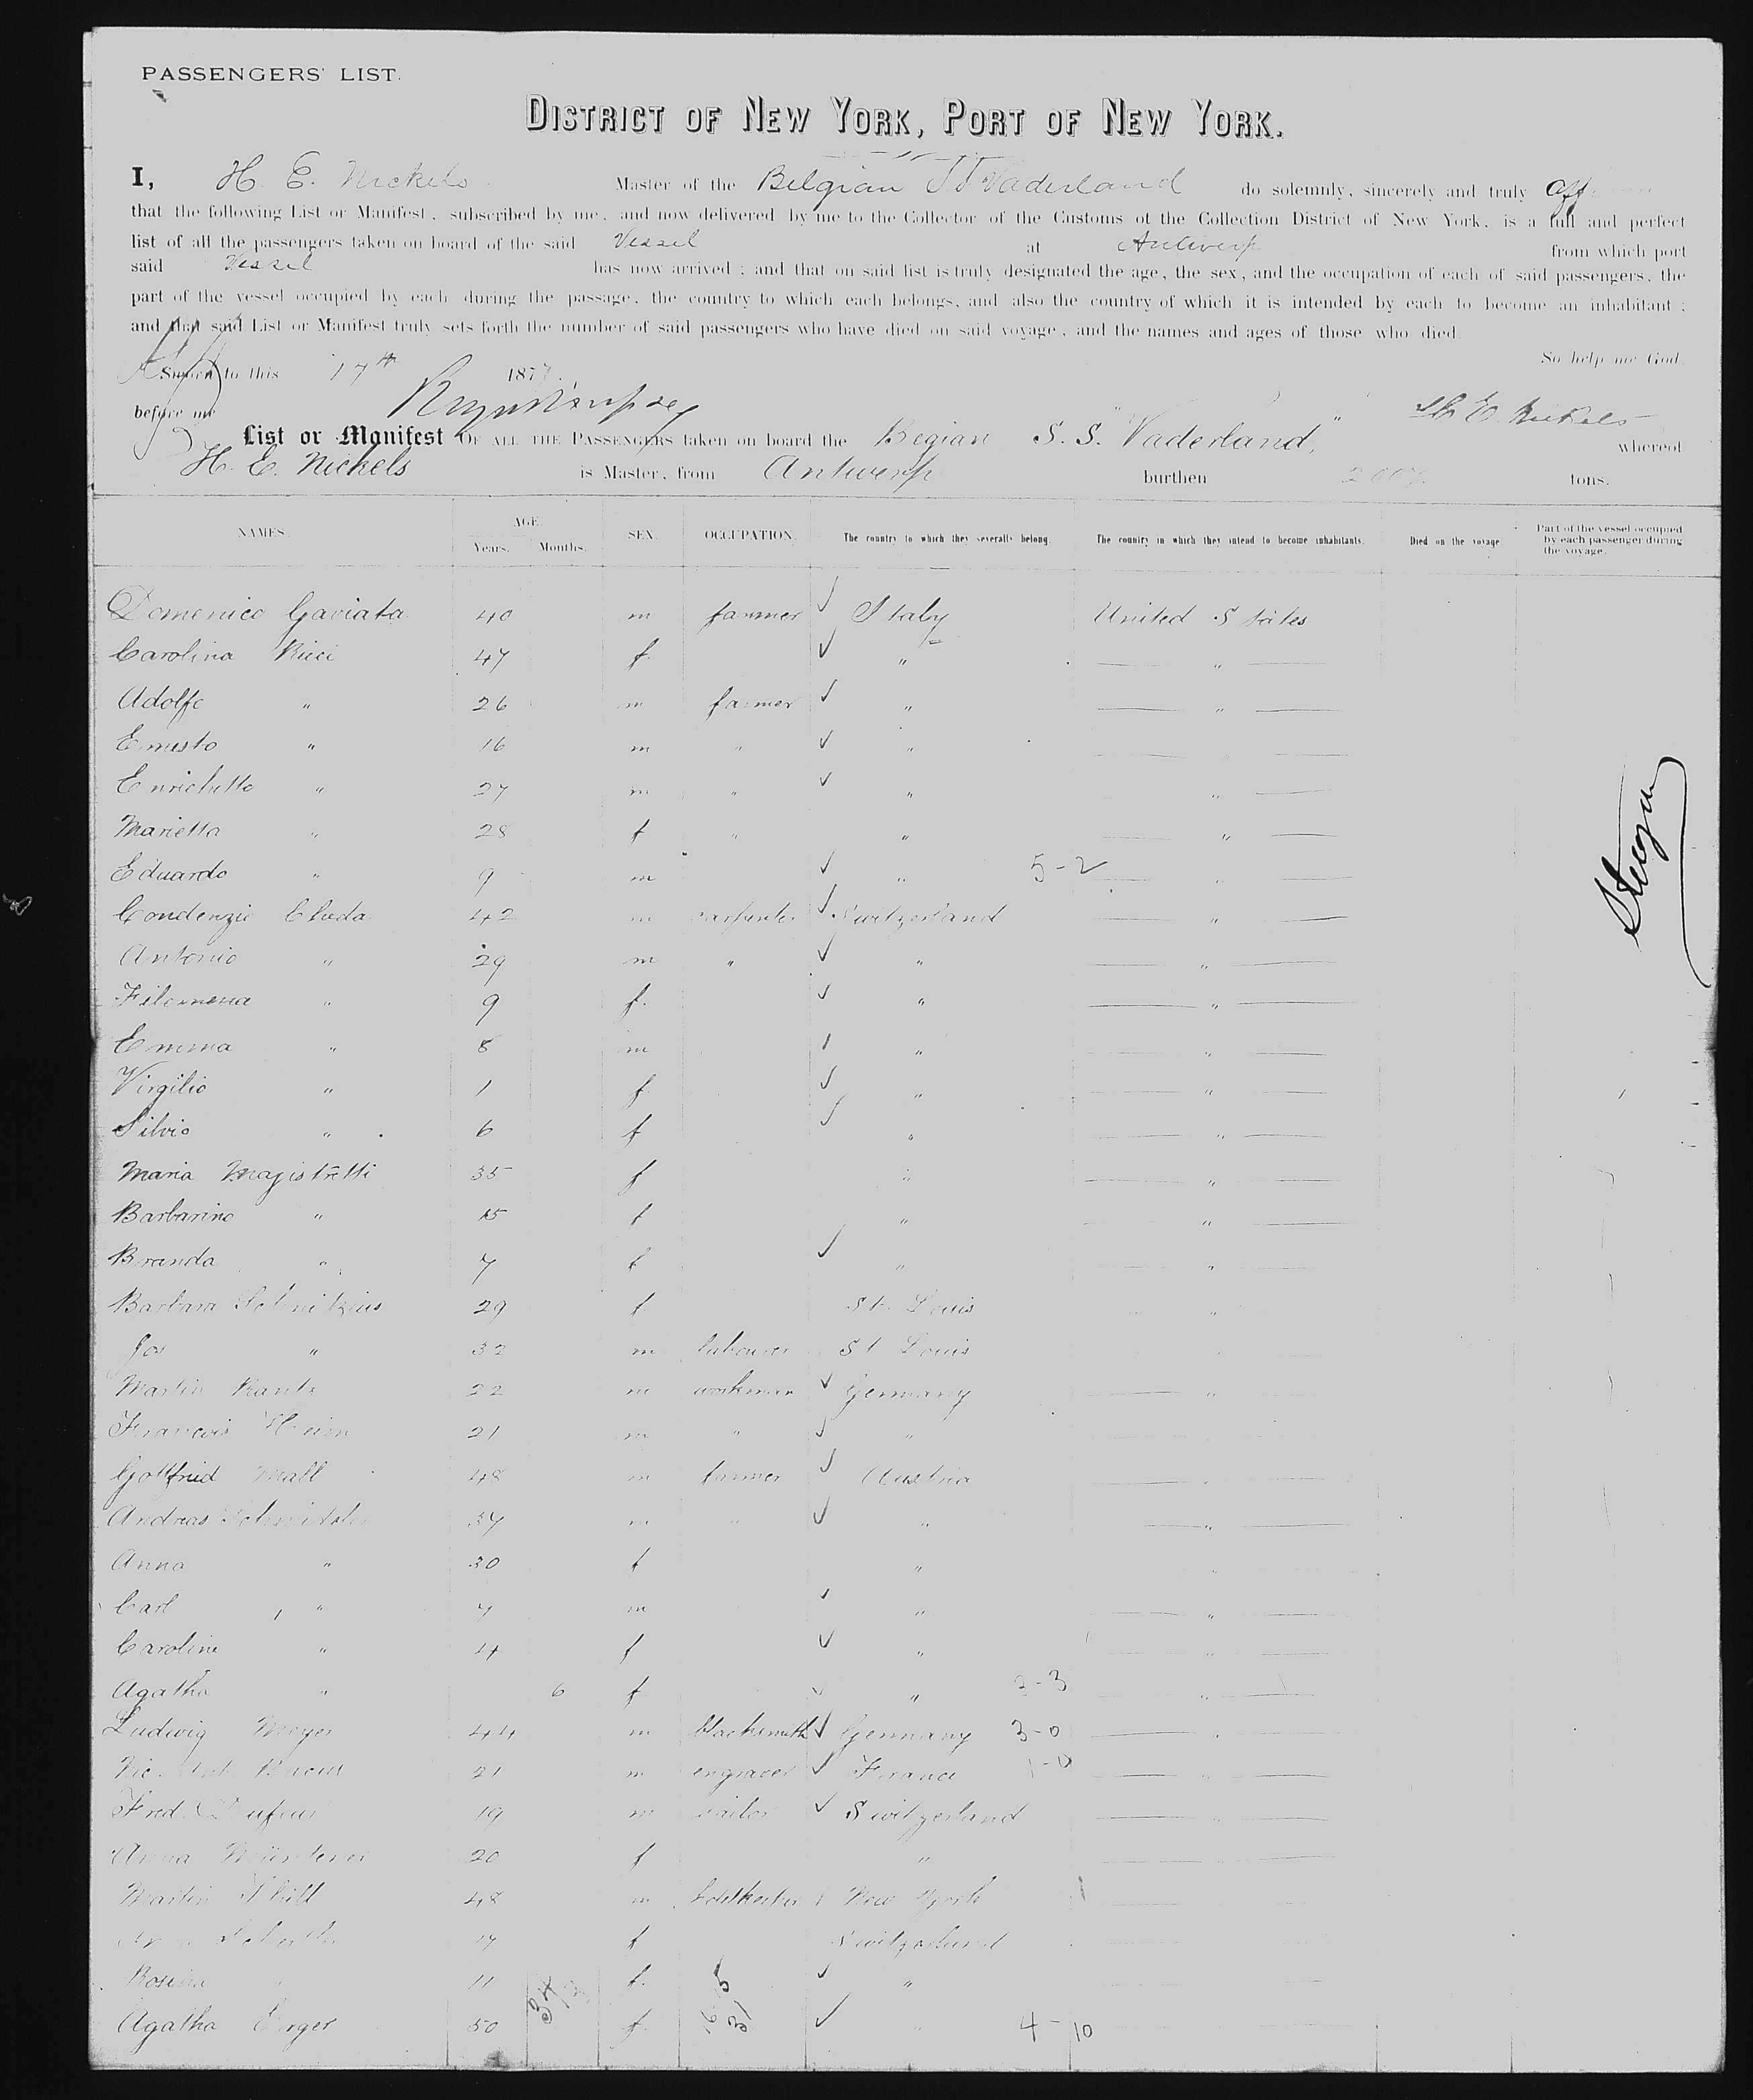 PASSENGERS' LIST.
DISTRICT OF NEW YORK, PORT OF NEW YORK.
I, H. E. Nickels Master of the Belgian SS Vaderland do solemnly, sincerely and truly aff
that the following List or Manifest, subscribed by me, and now delivered by me to the Collector of the Customs of the Collection District of New York, is a full and perfect
list of all the passengers taken on board of the said Vessel at Antwerp from which port
said Vessel has now arrived ; and that on said list is truly designated the age, the sex, and the occupation of each of said passengers, the
part of the vessel occupied by each during the passage, the country to which each belongs, and also the country of which it is intended by each to become an inhabitant ;
and that said List or Manifest truly sets forth the number of said passengers who have died on said voyage, and the names and ages of those who died.
So help me God.
Sworn to this 17th 187
before me H. E. Nickels
List or Manifest OF ALL THE PASSENGERS taken on board the Begian S. S. "Vaderland," whereof
H. E. Nickels is Master, from Antwerp burthen tons.
NAMES. AGE. Years. Months. SEX. OCCUPATION. The country to which they severally belong. The country in which they intend to become inhabitants. Died on the voyage Part of the vessel occupied by each passenger during the voyage.
Domenico Gaviata 40 m farmer ✓ Italy United States
Carolina Ricci 47 f ✓ " "
Adolfo " 26 m farmer ✓ " "
Ernesto " 16 m " ✓ " "
Enrichetto " 27 m " ✓ " "
Marietta " 28 f " " "
Eduardo " 9 m ✓ " 5-2 "
Condenzio Cheda 42 m carpenter ✓ Switzerland "
Antonio " 29 m " ✓ " "
Filomena " 9 f. ✓ " "
Emma " 8 m " "
Virgilio " 1 f ✓ " "
Silvio " 6 f ✓ " "
Maria Magistretti 35 f " "
Barbarino " 15 f " "
Branda " 7 f ✓ " "
Barbara 29 f St. Louis "
Jos " 32 m labourer St Louis
Martin Kantz 22 m workman ✓ Germany "
Francois 21 m " ✓ "
Gottfried Mall 48 m farmer ✓ Austria "
Andreas 37 m " ✓ " "
Anna " 30 f " "
Carl " 7 m ✓ " "
Caroline " 4 f ✓ " "
Agatha " 6 f ✓ " 2-3 "
Ludwig Meyer 44 m blacksmith ✓ Germany 3-0 "
21 m engraver ✓ France 1-0 "
Fred. Dufour 19 m ✓ Switzerland "
Anna 20 f "
Martin 48 m New York
17 f Switzerland
Rosina " 11 f. ✓ "
Agatha 50 f. ✓ " 4-10